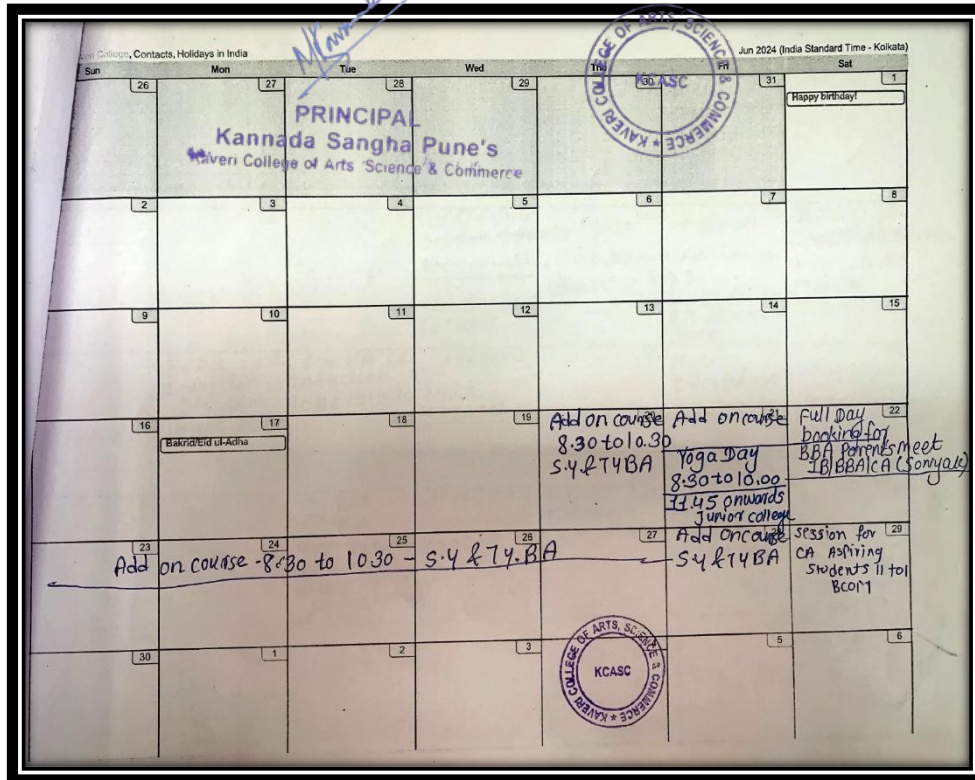 College, Contacts, Holidays in India
Jun 2024 (India Standard Time - Kolkata)
Sun Mon Tue Wed Thu Fri Sat
26 27 28 29 30 31 1
Happy birthday!
PRINCIPAL
Kannada Sangha Pune's
Kaveri College of Arts Science & Commerce
KAVERI COLLEGE OF ARTS, SCIENCE & COMMERCE
KCASC
2 3 4 5 6 7 8
9 10 11 12 13 14 15
16 17 18 19 20 21 22
Bakrid/Eid ul-Adha
Add on course
8.30 to 10.30
S.Y & TYBA
Add on course
Yoga Day
8.30 to 10.00
11.45 onwards
Junior college
Full Day
booking for
BBA Parents meet
IB/BBA/CA (Sonyak)
23 24 25 26 27 28 29
Add on course - 8.30 to 10 30 - S.Y & TY.BA
Add on course
S.Y & TYBA
session for
CA Aspiring
Students 11 to 1
BCOM
30 1 2 3 5 6
KAVERI COLLEGE OF ARTS, SCIENCE & COMMERCE
KCASC